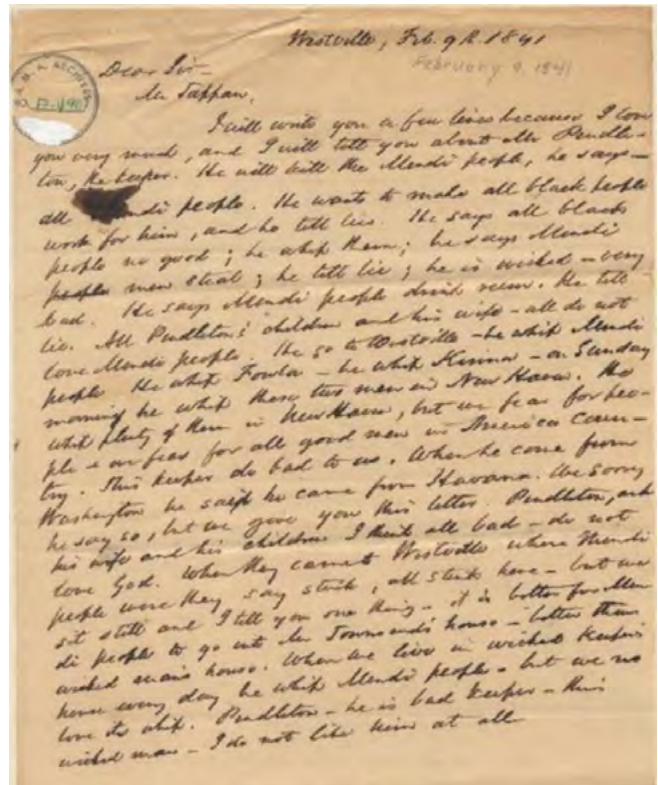 Westville, Feb. 9th. 1841
February 9, 1841
A. M. A. ARCHIVES
Dear Sir-
Mr Tappan,
I will write you a few lines because I love
you very much, and I will tell you about Mr Pendle-
ton, the keeper. He will kill the Mendi people, he says-
all Mendi people. He wants to make all black people
work for him, and he tell lie. He says all black
people no good; he whip them; he says Mendi
people men steal; he tell lie; he is wicked - very
bad. He says Mendi people drink rum. He tell
lie. All Pendleton's children and his wife - all do not
love Mendi people. He go to Westville - he whip Mendi
people He whip Fowla - he whip Kinna - on Sunday
morning he whip these two men in New Haven. He
whip plenty of them in New Haven, but we fear for peo-
ple & our fear for all good men in America coun-
try. This keeper do bad to us. When he come from
Washington he said he came from Havana. We sorry
he say so, but we give you this letter. Pendleton, and
his wife and his children I think all bad - do not
love God. When they came to Westville where Mendi
people were they say stink, all stink here - but we
sit still and I tell you one thing - it is better for Men
di people to go into Mr Townsend's house - better than
wicked man's house. When we live in wicked keeper's
house every day he whip Mendi people - but we no
love the whip. Pendleton - he is bad keeper - this
wicked man - I do not like him at all